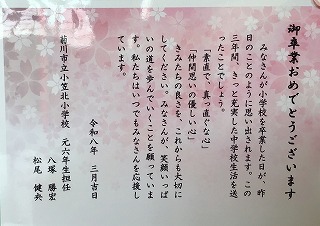 御卒業おめでとうございます
みなさんが小学校を卒業した日が、昨
日のことのように思い出されます。この
三年間、きっと充実した中学校生活を送
ったことでしょう。
「素直で、真っ直ぐな心」
「仲間思いの優しい心」
きみたちの良さを、これからも大切に
してください。みなさんが、笑顔いっぱ
いの道を歩んでいくことを願っていま
す。私たちはいつでもみなさんを応援し
ています。
令和八年 三月吉日
菊川市立小笠北小学校 元六年生担任
八塚 勝宏
松尾 健央